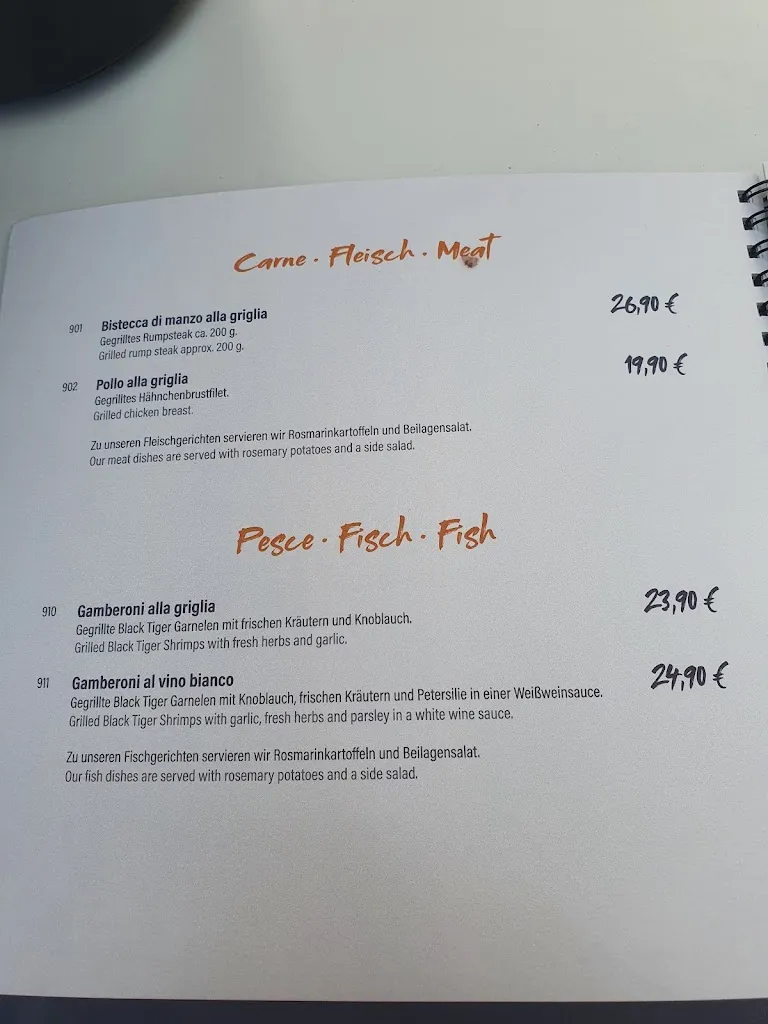 Carne · Fleisch · Meat
901 Bistecca di manzo alla griglia 26,90 €
Gegrilltes Rumpsteak ca. 200 g.
Grilled rump steak approx. 200 g.
902 Pollo alla griglia 19,90 €
Gegrilltes Hähnchenbrustfilet.
Grilled chicken breast.
Zu unseren Fleischgerichten servieren wir Rosmarinkartoffeln und Beilagensalat.
Our meat dishes are served with rosemary potatoes and a side salad.
Pesce · Fisch · Fish
910 Gamberoni alla griglia 23,90 €
Gegrillte Black Tiger Garnelen mit frischen Kräutern und Knoblauch.
Grilled Black Tiger Shrimps with fresh herbs and garlic.
911 Gamberoni al vino bianco 24,90 €
Gegrillte Black Tiger Garnelen mit Knoblauch, frischen Kräutern und Petersilie in einer Weißweinsauce.
Grilled Black Tiger Shrimps with garlic, fresh herbs and parsley in a white wine sauce.
Zu unseren Fischgerichten servieren wir Rosmarinkartoffeln und Beilagensalat.
Our fish dishes are served with rosemary potatoes and a side salad.